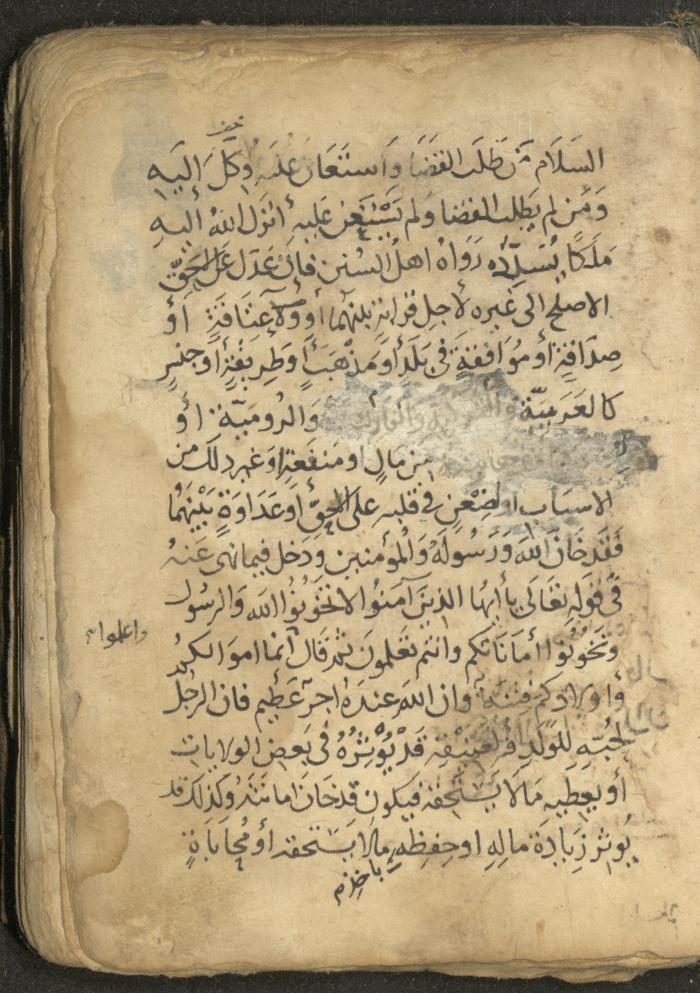 السلام من طلب القضا واستعان عليه وكل إليه
ومن لم يطلب القضا ولم يستعن عليه أنزل الله إليه
ملكا يسدده رواه اهل السنن فان عدل عن الحق
الاصلح الى غيره لأجل قرابة بينهما أو ولاء عتاقة أو
صداقة أو موافقة في بلد أو مذهب أو طريقة أو جنس
كالعربية والفارسية والتركية والرومية أو
من مال او منفعة او غير ذلك من
الاسباب او لضغن في قلبه على الحق أو عداوة بينهما
فقد خان الله ورسوله والمؤمنين ودخل فيما نهى عنه
في قوله تعالى يا أيها الذين آمنوا لا تخونوا الله والرسول
وتخونوا أماناتكم وانتم تعلمون ثم قال انما اموالكم
واعلموا
وأولادكم فتنة وان الله عنده اجر عظيم فان الرجل
لحبه للولد أو لعتيقه قد يؤثره في بعض الولايات
أو يعطيه ما لا يستحقه فيكون قد خان امانته وكذلك قد
يوثر زيادة ماله او حفظه ما لا يستحقه أو محاباة